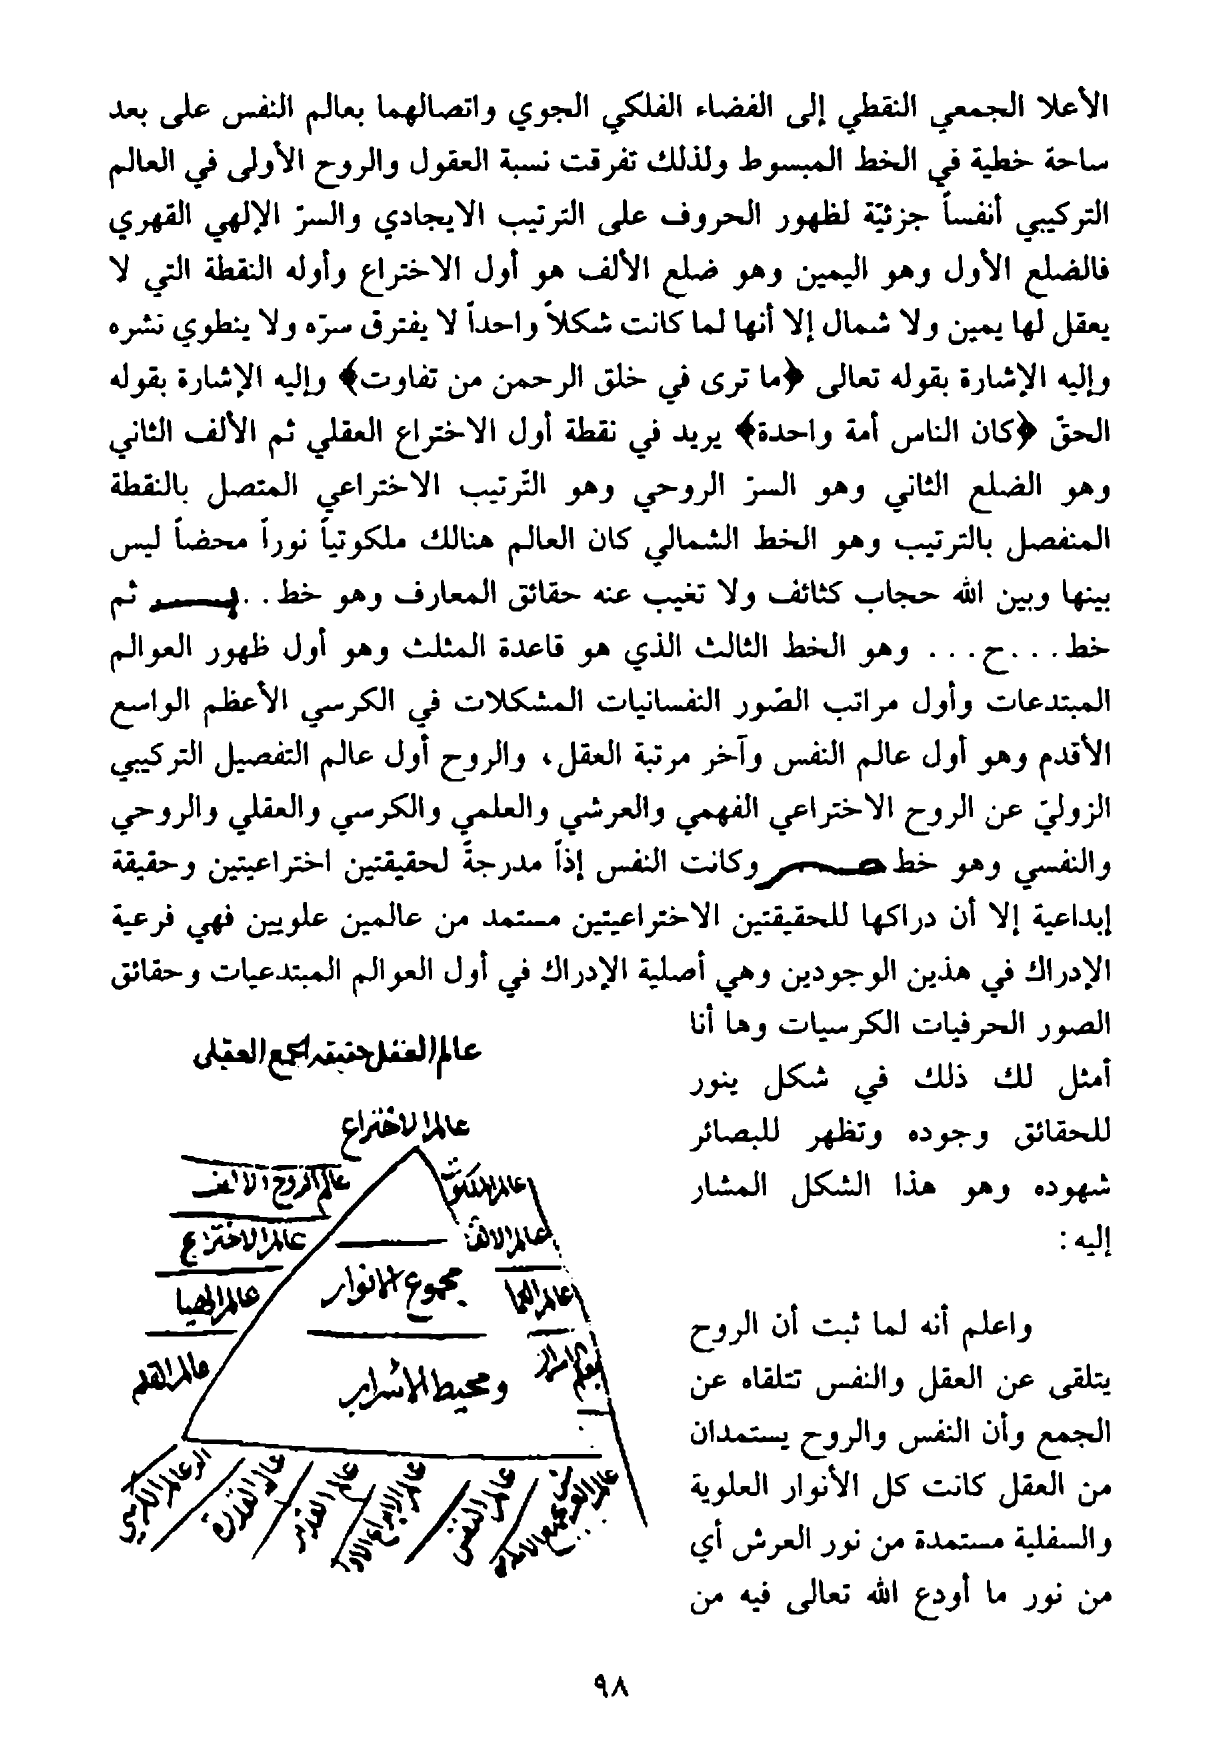 الأعلا الجمعي النقطي إلى الفضاء الفلكي الجوي واتصالهما بعالم النفس على بعد
ساحة خطية في الخط المبسوط ولذلك تفرقت نسبة العقول والروح الأولى في العالم
التركيبي أنفساً جزئيّة لظهور الحروف على الترتيب الايجادي والسرّ الإلهي القهري
فالضلع الأول وهو اليمين وهو ضلع الألف هو أول الاختراع وأوله النقطة التي لا
يعقل لها يمين ولا شمال إلا أنها لما كانت شكلاً واحداً لا يفترق سرّه ولا ينطوي نشره
وإليه الإشارة بقوله تعالى ﴿ما ترى في خلق الرحمن من تفاوت﴾ وإليه الإشارة بقوله
الحقّ ﴿كان الناس أمة واحدة﴾ يريد في نقطة أول الاختراع العقلي ثم الألف الثاني
وهو الضلع الثاني وهو السرّ الروحي وهو التّرتيب الاختراعي المتصل بالنقطة
المنفصل بالترتيب وهو الخط الشمالي كان العالم هنالك ملكوتياً نوراً محضاً ليس
بينها وبين الله حجاب كثائف ولا تغيب عنه حقائق المعارف وهو خط . . ثم
خط. . .ح. . . وهو الخط الثالث الذي هو قاعدة المثلث وهو أول ظهور العوالم
المبتدعات وأول مراتب الصّور النفسانيات المشكلات في الكرسي الأعظم الواسع
الأقدم وهو أول عالم النفس وآخر مرتبة العقل، والروح أول عالم التفصيل التركيبي
الزوليّ عن الروح الاختراعي الفهمي والعرشي والعلمي والكرسي والعقلي والروحي
والنفسي وهو خط وكانت النفس إذاً مدرجةً لحقيقتين اختراعيتين وحقيقة
إبداعية إلا أن دراكها للحقيقتين الاختراعيتين مستمد من عالمين علويين فهي فرعية
الإدراك في هذين الوجودين وهي أصلية الإدراك في أول العوالم المبتدعيات وحقائق
الصور الحرفيات الكرسيات وها أنا
أمثل لك ذلك في شكل ينور
للحقائق وجوده وتظهر للبصائر
شهوده وهو هذا الشكل المشار
إليه :
واعلم أنه لما ثبت أن الروح
يتلقى عن العقل والنفس تتلقاه عن
الجمع وأن النفس والروح يستمدان
من العقل كانت كل الأنوار العلوية
والسفلية مستمدة من نور العرش أي
من نور ما أودع الله تعالى فيه من
عالم العقل حقيقة الجمع العقلى
عالم الاختراع
عالم الروح الألف
عالم الملكوت
عالم الاختراع
عالم الألف
مجموع الانوار
عالم الهبا
عالم العما
ومحيط الأسرار
عالم القلم
عالم الكرسي
عالم القدرة
عالم
عالم الابداع
عالم النفس
عالم
٩٨